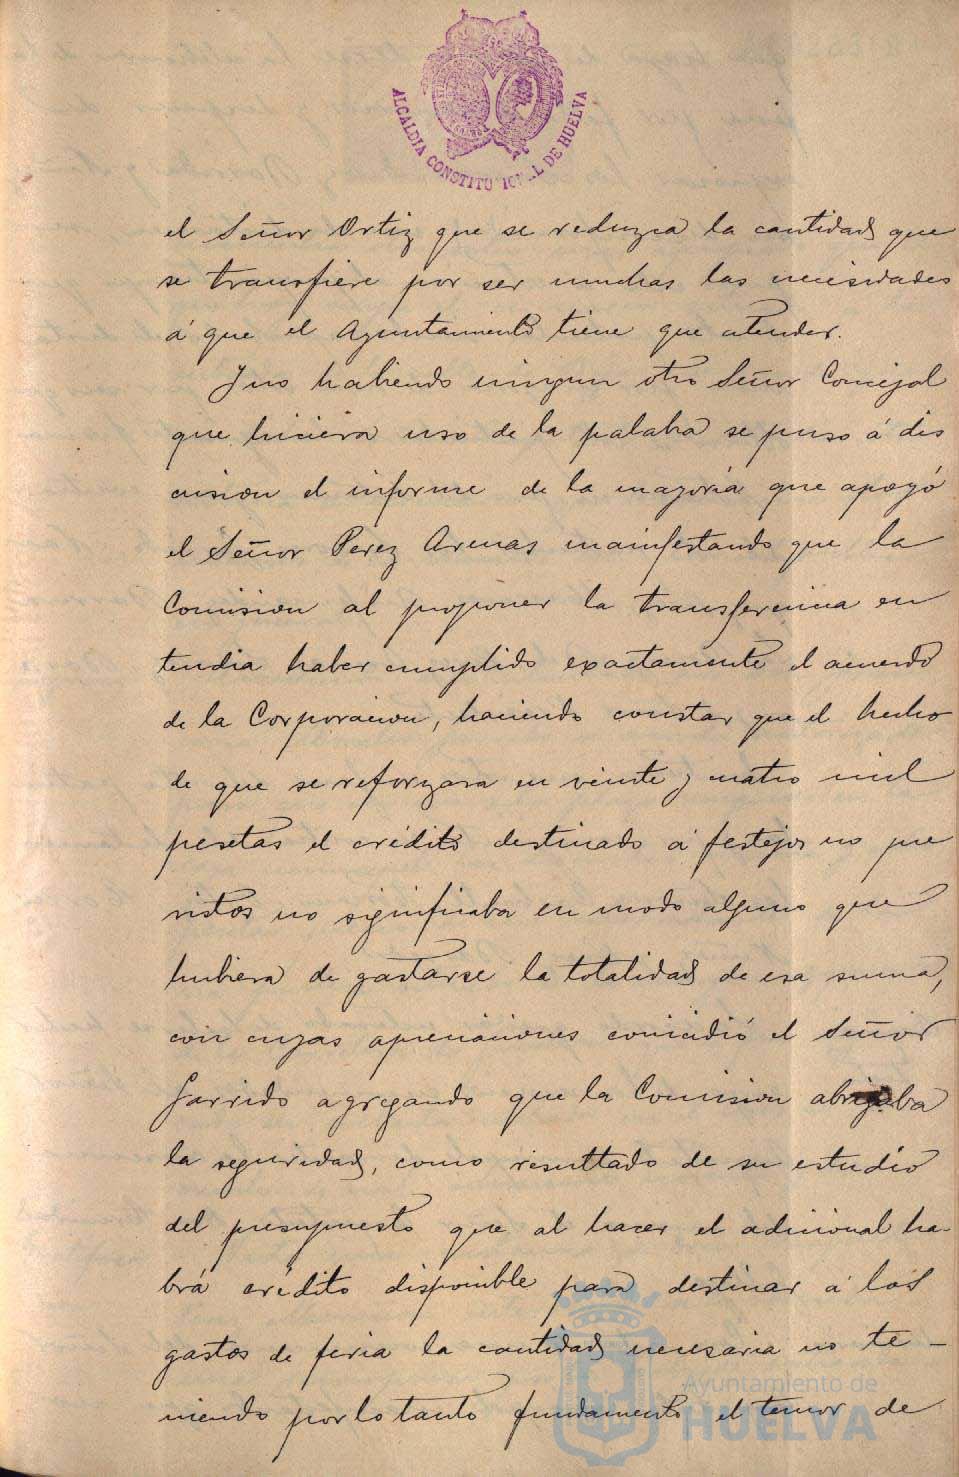 ALCALDIA CONSTITUCIONAL DE HUELVA
el Señor Ortiz que se reduzca la cantidad que
se transfiere por ser muchas las necesidades
á que el Ayuntamiento tiene que atender.
Y no habiendo ningun otro Señor Concejal
que hiciera uso de la palabra se puso á dis
cusion el informe de la mayoria que apoyó
el Señor Perez Arenas manifestando que la
Comision al proponer la transferencia en
tendia haber cumplido exactamente el acuerdo
de la Corporacion, haciendo constar que el hecho
de que se reforzara en veinte y cuatro mil
pesetas el crédito destinado á festejos no pre
vistos no significaba en modo alguno que
hubiera de gastarse la totalidad de esa suma,
con cuyas apreciaciones coincidió el Señor
Garrido agregando que la Comision abrigaba
la seguridad, como resultado de su estudio
del presupuesto que al hacer el adicional ha-
brá crédito disponible para destinar á los
gastos de feria la cantidad necesaria no te-
niendo por lo tanto fundamento el temor de
Ayuntamiento de
HUELVA